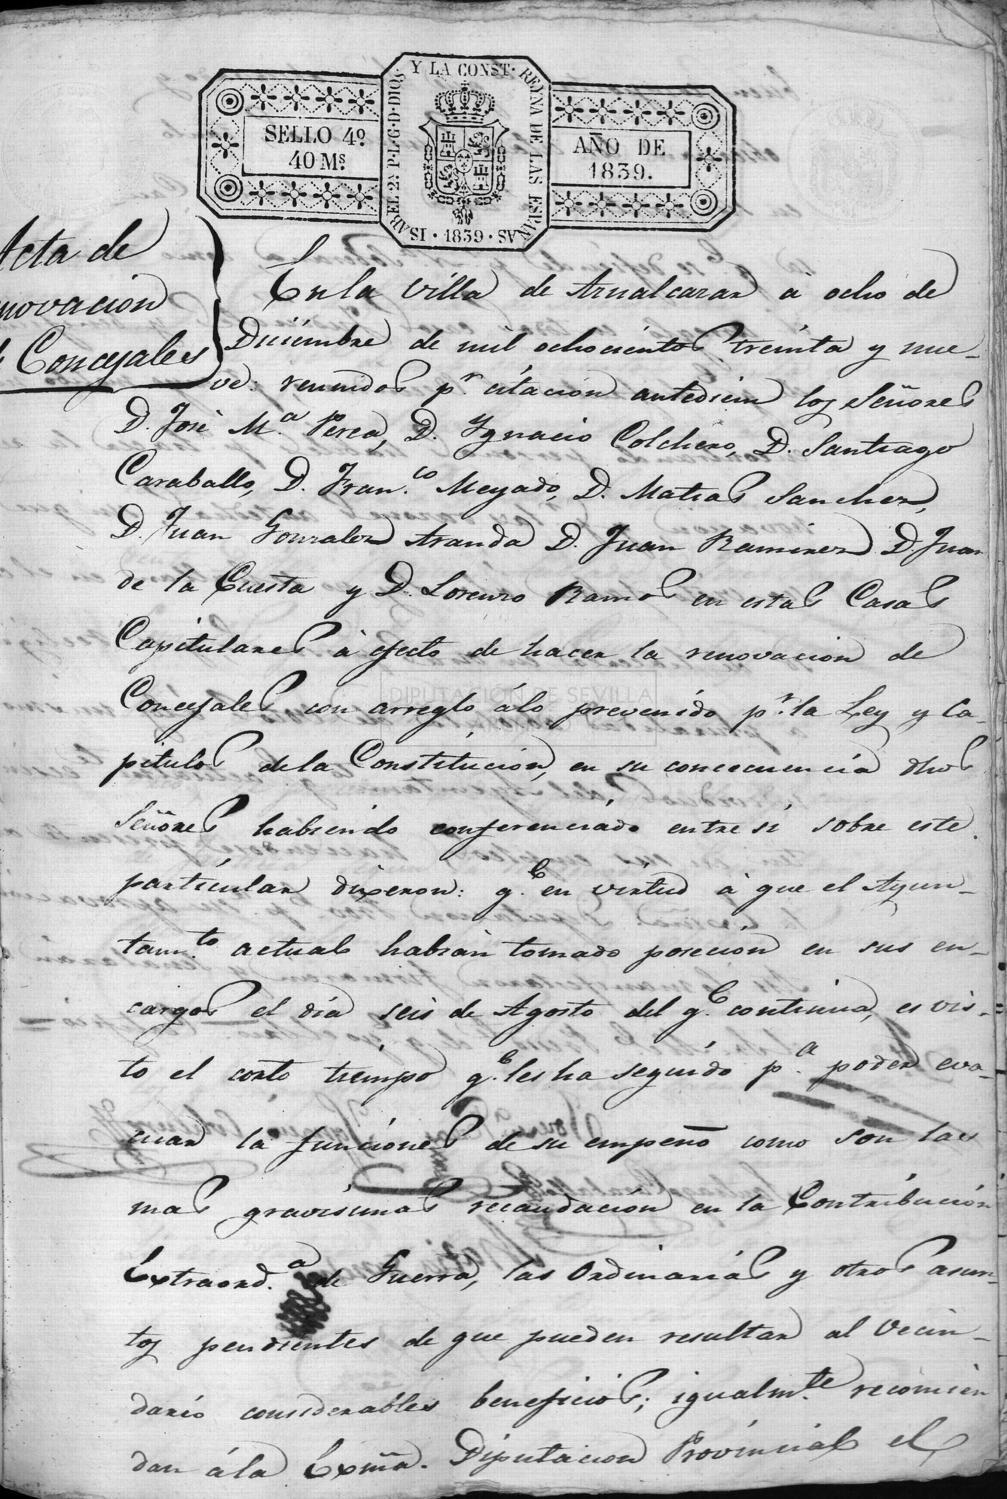 Y LA CONST· REYNA DE LAS ESPAÑAS · 1839 · ISABEL 2ª P·L·G·D·DIOS·
SELLO 4º
40 Mˢ
AÑO DE
1839.
Acta de
novacion
Concejales
En la Villa de Aznalcazar à ocho de
Diciembre de mil ochocientos treinta y nue-
ve: reunidos pʳ citacion antediem los Señores
D. José M.ª Perea, D. Ygnacio Colchero, D. Santiago
Caraballo, D. Fran.ᶜᵒ Meyado, D. Matias Sanchez,
D. Juan Gonzalez Aranda D. Juan Ramirez D. Juan
de la Cuesta y D. Lorenzo Ramos en estas Casas
Capitulares à efecto de hacer la renovacion de
Concejales con arreglo álo prevenido pʳ la Ley y Ca-
DIPUTACIÓN DE SEVILLA
pitulos dela Constitucion, en su concecuencia dhos
Señores habiendo conferenciado entre si sobre este
particular dixeron: q.ᵉ en virtud à que el Ayun-
tam.ᵗᵒ actual habian tomado posecion en sus en-
cargos el dia seis de Agosto del q.ᵉ continua, es vis-
to el corto tiempo q.ᵉ les ha seguido p.ᵃ poder eva-
cuar la funciones de su empeño como son las
mas gravisimas recaudacion en la Contribucion
Extraord.ᵃ de Guerra, las Ordinarias y otros asun-
tos pendientes de que pueden resultar al Vecin-
dario considerables beneficios; igualm.ᵗᵉ recomien
dan ála Exmã. Diputacion Provincial el